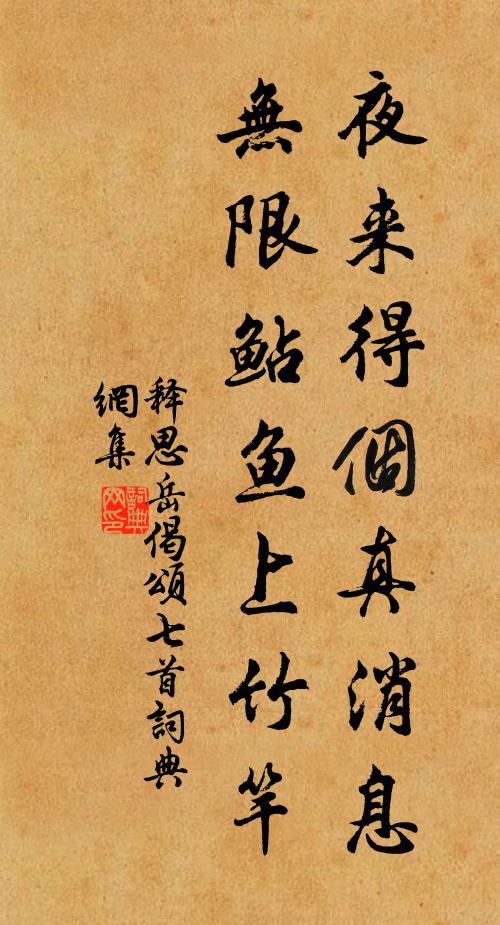 夜来得個真消息
無限鮎鱼上竹竿
释思岳偈頌七首詞典
網集
詞典
网印